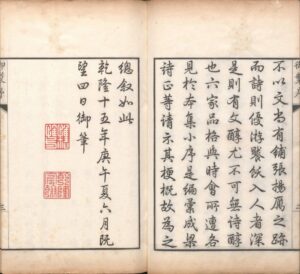 不以文尚有鋪張揚厲之跡
而詩則優游饜飫入人者深
是則有文醇尤不可無詩醇
也六家品格與時會所遭各
見於本集小序是編彙成梁
詩正等請示其梗概故為之
總叙如此
乾隆十五年庚午夏六月既
望四日御筆